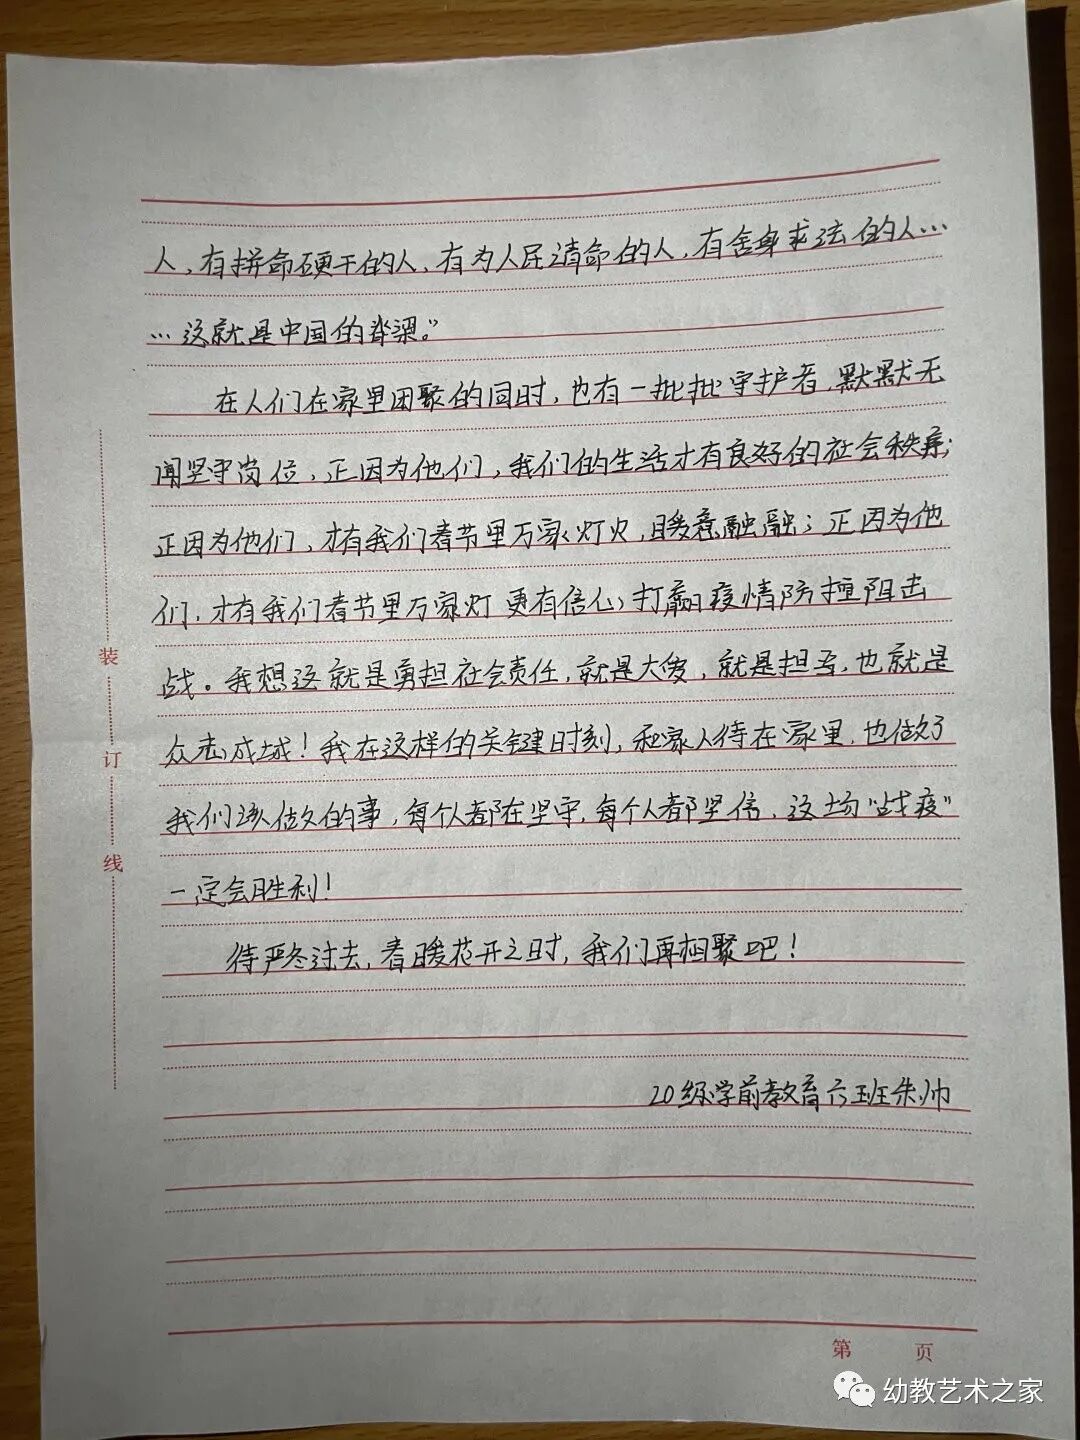 人、有拼命硬干的人、有为人民请命的人、有舍身求法的人…
…这就是中国的脊梁。”
在人们在家里团聚的同时，也有一批批守护者，默默无
闻坚守岗位，正因为他们，我们的生活才有良好的社会秩序；
正因为他们，才有我们春节里万家灯火，暖意融融；正因为他
们，才有我们春节里万家灯更有信心打赢疫情防控阻击
战。我想这就是勇担社会责任，就是大爱，就是担当，也就是
众志成城！我在这样的关键时刻，和家人待在家里，也做了
我们该做的事，每个人都在坚守，每个人都坚信，这场“战疫”
一定会胜利！
待严冬过去，春暖花开之时，我们再相聚吧！
20级学前教育六班朱帅
装
订
线
第 页
幼教艺术之家